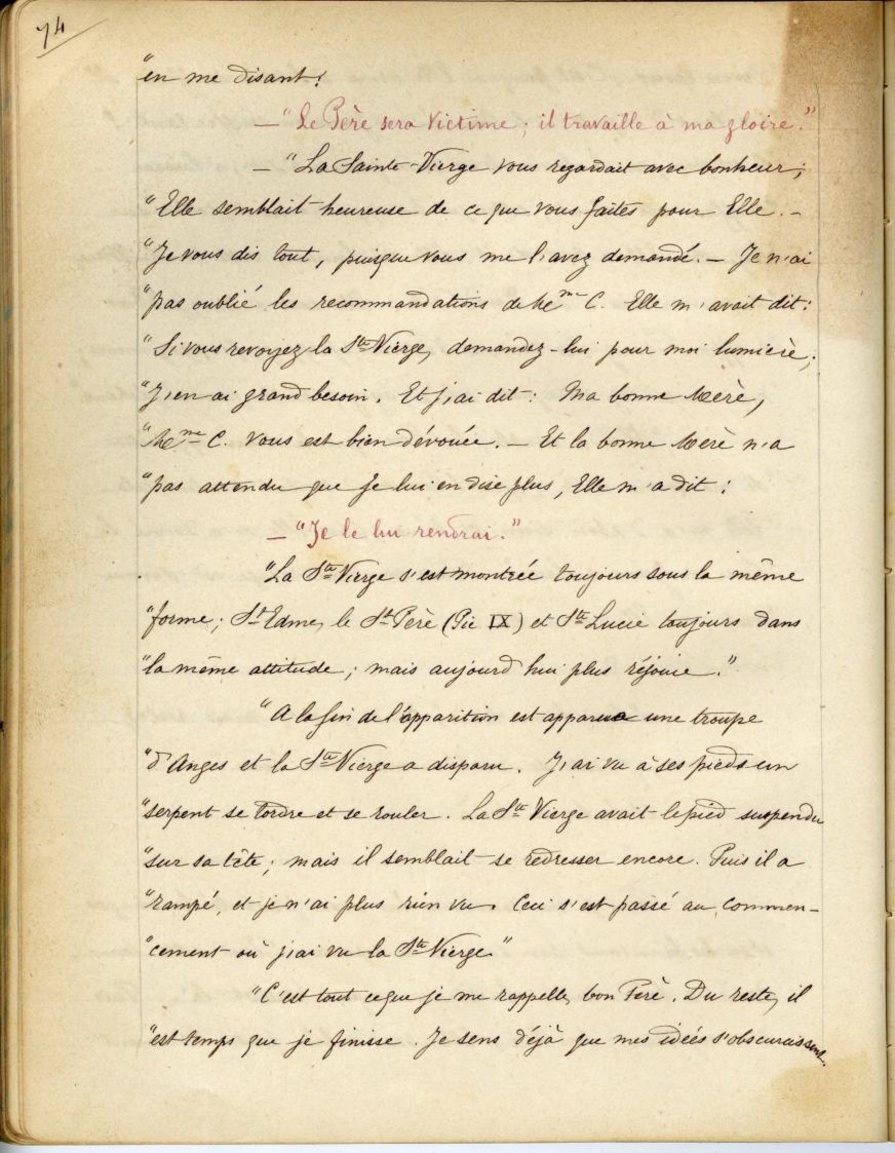 74
"en me disant:
— "Le Père sera Victime ; il travaille à ma gloire."
— "La Sainte-Vierge vous regardait avec bonheur ;
"Elle semblait heureuse de ce que vous faites pour Elle. -
"Je vous dis tout, puisque vous me l'avez demandé. — Je n'ai
"pas oublié les recommandations de Me C. Elle m'avait dit:
"Si vous revoyez la Ste Vierge, demandez-lui pour moi lumière ;
"J'en ai grand besoin. Et j'ai dit : Ma bonne Mère,
"Me C. vous est bien dévouée. — Et la bonne Mère n'a
"pas attendu que je lui en dise plus, Elle m'a dit :
— "Je le lui rendrai."
"La Ste Vierge s'est montrée toujours sous la même
"forme ; St Edme, le St Père (Pie IX) et Ste Lucie toujours dans
"la même attitude ; mais aujourd'hui plus réjouie."
"A la fin de l'apparition est apparue une troupe
"d'Anges et la Ste Vierge a disparu. J'ai vu à ses pieds un
"serpent se tordre et se rouler. La Ste Vierge avait le pied suspendu
"sur sa tête ; mais il semblait se redresser encore. Puis il a
"rampé, et je n'ai plus rien vu. Ceci s'est passé au commen-
"cement où j'ai vu la Ste Vierge"
"C'est tout ce que je me rappelle, bon Père. Du reste, il
"est temps que je finisse. Je sens déjà que mes idées s'obscurcissent.